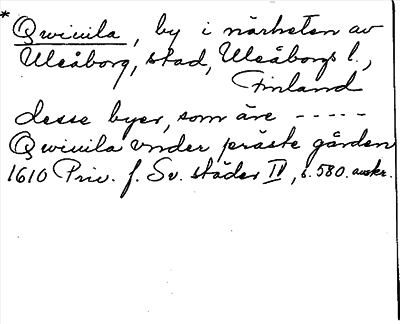 * Qwiuila, by i närheten av
Uleåborg, stad, Uleåborgs l.,
Finland
desse byer, som äre - - - - -
Qwiuila vnder präste gården
1610 Priv. f. Sv. städer IV, s. 580. avskr.